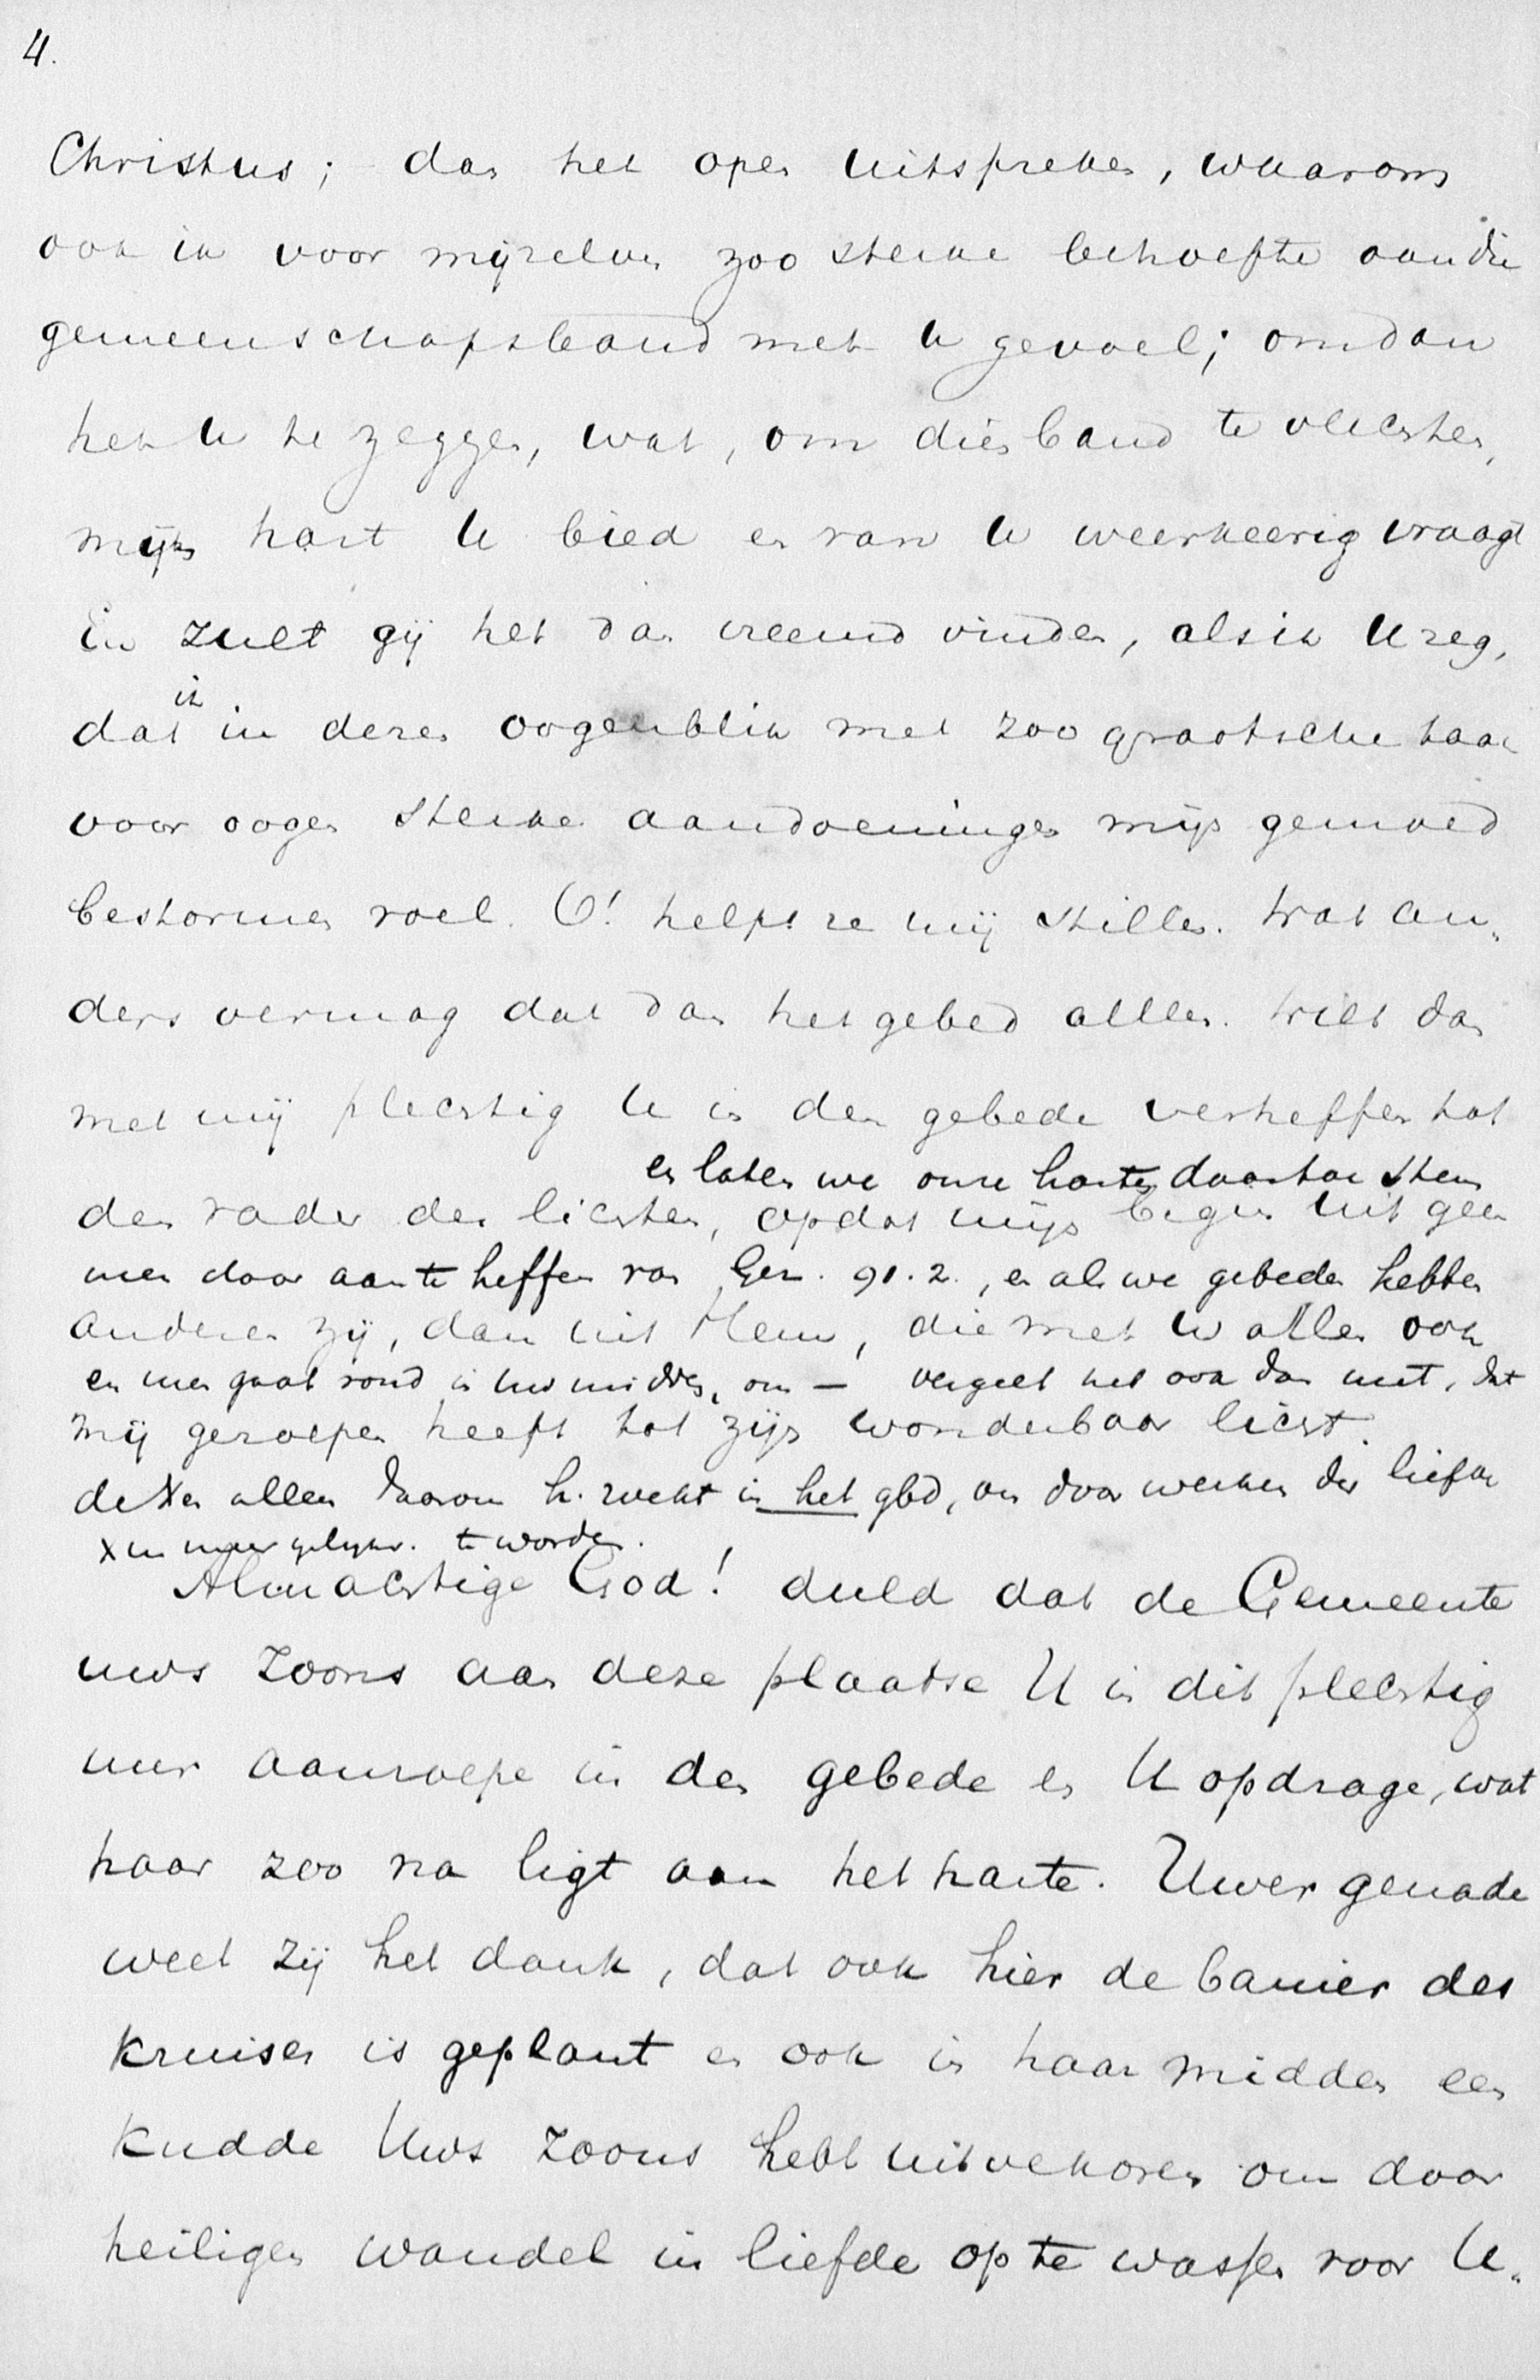 4.
Christus; dan het open uitspreken, waarom
ook ik voor mijzelven zoo sterke behoefte aan die
gemeenschapsband met U gevoel; om dan
het U te zeggen, wat, om dien band te vlechten,
mijn hart U bied en van U weerkeerig vraagt
En zult gij het dan vreemd vinden, als ik U zeg,
dat ik in dezen oogenblik met zoo grootsche taak
voor oogen sterke aandoeningen mijn gemoed
bestormen voel. O! helpt ze mij stillen. Wat an-
ders vermag dat dan het gebed alleen. Wilt dan
met mij plechtig U in den gebede verheffen tot
en laten we onze harten daartoe stem
den vader der lichten, opdat mijn begin uit geen
men door aan te heffen van Gez. 91.2., en als we gebeden hebben
anderen zij, dan uit Hem, die met U allen ook
en men gaat rond in ons midden, om — vergeet het ook dan niet, dat
mij geroepen heeft tot zijn wonderbaar licht.
allen daarom h. zoekt in het gbd, om door werken der liefde
X meer te worden.
Almachtige God! duld dat de Gemeente
uws Zoons aan deze plaatse U in dit plechtig
uur aanroepe in den gebede en U opdrage, wat
haar zoo na ligt aan het harte. Uwer genade
weet zij het dank, dat ook hier de banier des
kruises is geplant en ook in haar midden een
kudde Uws Zoons hebt uitverkoren om door
heiligen wandel in liefde op te wassen voor U.